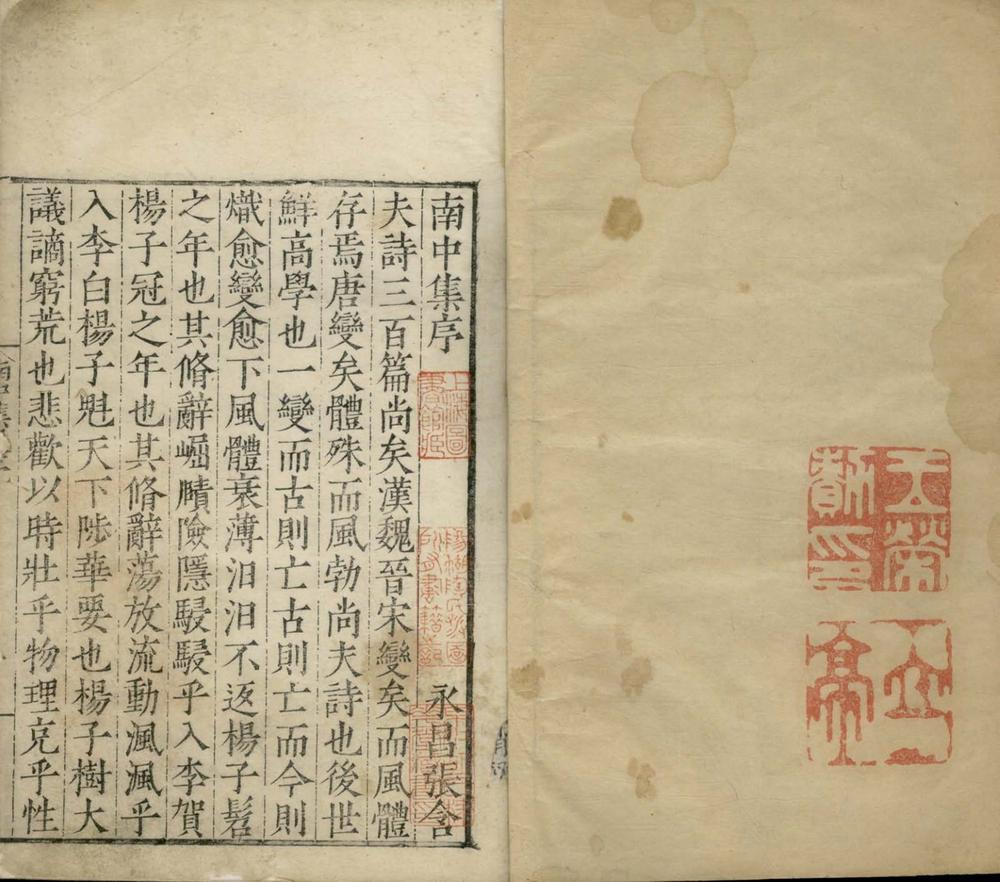 南中集序 永昌張含
上海圖書館藏
陽湖陶氏涉園所有書籍之記
夫詩三百篇尚矣漢魏晉宋變矣而風體
存焉唐變矣體殊而風勃尚夫詩也後世
鮮高學也一變而古則亡古則亡而今則
熾愈變愈下風體衰薄汩汩不返楊子髫
之年也其脩辭崛賾險隱駸駸乎入李賀
楊子冠之年也其脩辭蕩放流動渢渢乎
入李白楊子魁天下陟華要也楊子樹大
議謫窮荒也悲歡以時壯乎物理克乎性